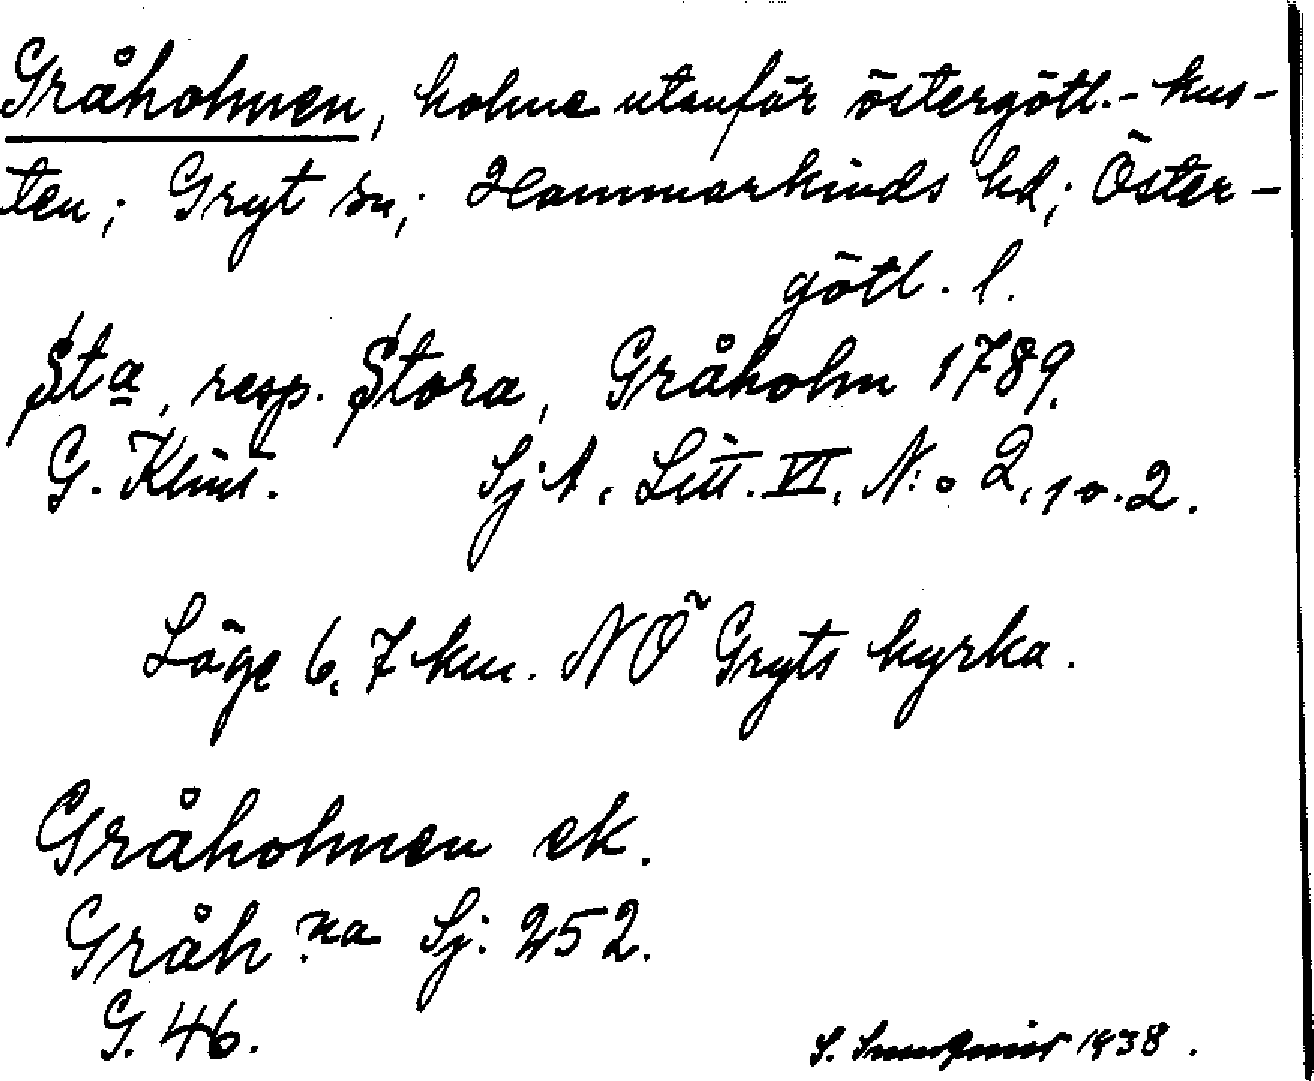 Gråholmen, holme utanför östergötl.-kus-
ten; Gryt sn,; Hammarkinds hd; Öster-
götl. l.
Sta, resp. Stora, Gråholm 1789.
G. Klint. SjA, Litt. VI, N:o 2, 1 o. 2.
Läge 6,7 km. NÖ Gryts kyrka.
Gråholmen ek.
Gråh.na Sj: 252.
G. 46.
S. 1938.